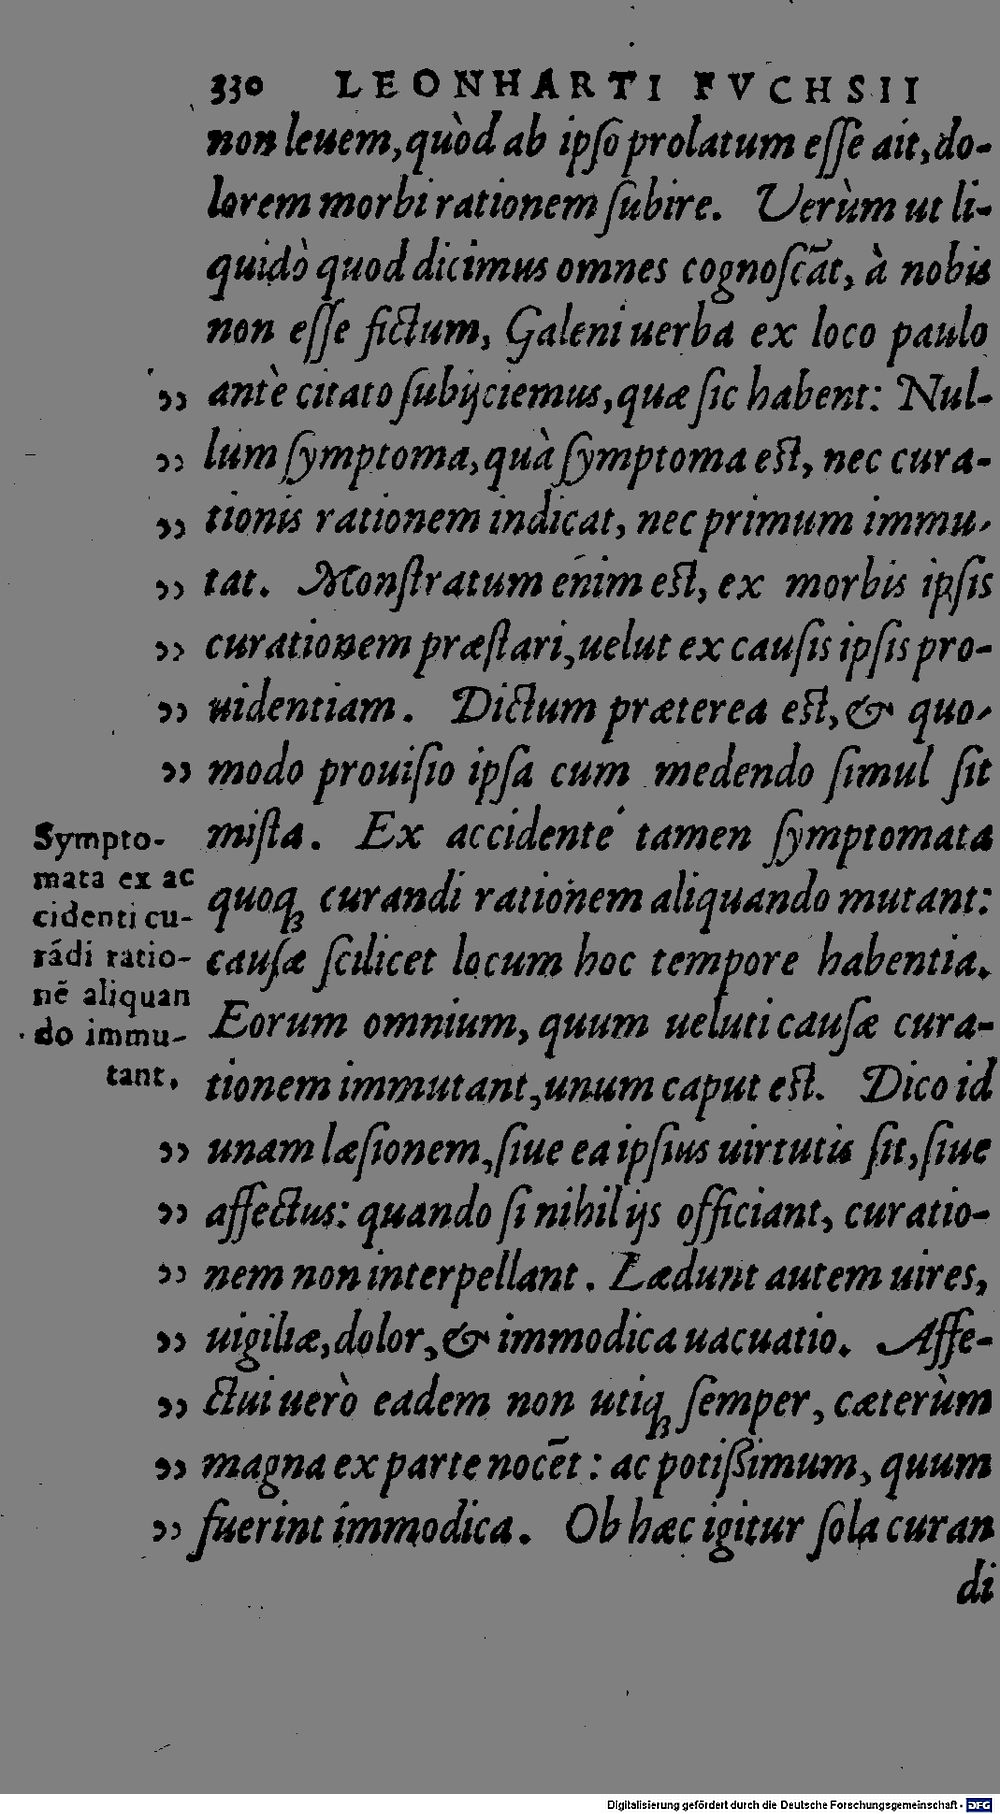 330 LEONHARTI FVCHSII
non leuem, quòd ab ipſo prolatum eſſe ait, do-
lorem morbi rationem ſubire. Verùm ut li-
quidò quod dicimus omnes cognoſcāt, à nobis
non eſſe fictum, Galeni uerba ex loco paulo
„ antè citato ſubijciemus, quæ ſic habent: Nul-
„ lum ſymptoma, quà ſymptoma est, nec cura-
„ tionis rationem indicat, nec primum immu-
„ tat. Monſtratum enim est, ex morbis ipſis
„ curationem præſtari, uelut ex cauſis ipſis pro-
„ uidentiam. Dictum præterea est, & quo-
„ modo prouiſio ipſa cum medendo ſimul ſit
miſta. Ex accidente tamen ſymptomata
quoqꝫ curandi rationem aliquando mutant:
cauſæ ſcilicet locum hoc tempore habentia.
Eorum omnium, quum ueluti cauſæ cura-
tionem immutant, unum caput est. Dico id
„ unam læſionem, ſiue ea ipſius uirtutis ſit, ſiue
„ affectus: quando ſi nihil ijs officiant, curatio-
„ nem non interpellant. Lædunt autem uires,
„ uigiliæ, dolor, & immodica uacuatio. Affe-
„ ctui uerò eadem non utiqꝫ ſemper, cæterùm
„ magna ex parte nocēt: ac potißimum, quum
„ fuerint immodica. Ob hæc igitur ſola curan
di
Sympto-
mata ex ac
cidenti cu-
rādi ratio-
nē aliquan
do immu-
tant.
Digitalisierung gefördert durch die Deutsche Forschungsgemeinschaft - DFG